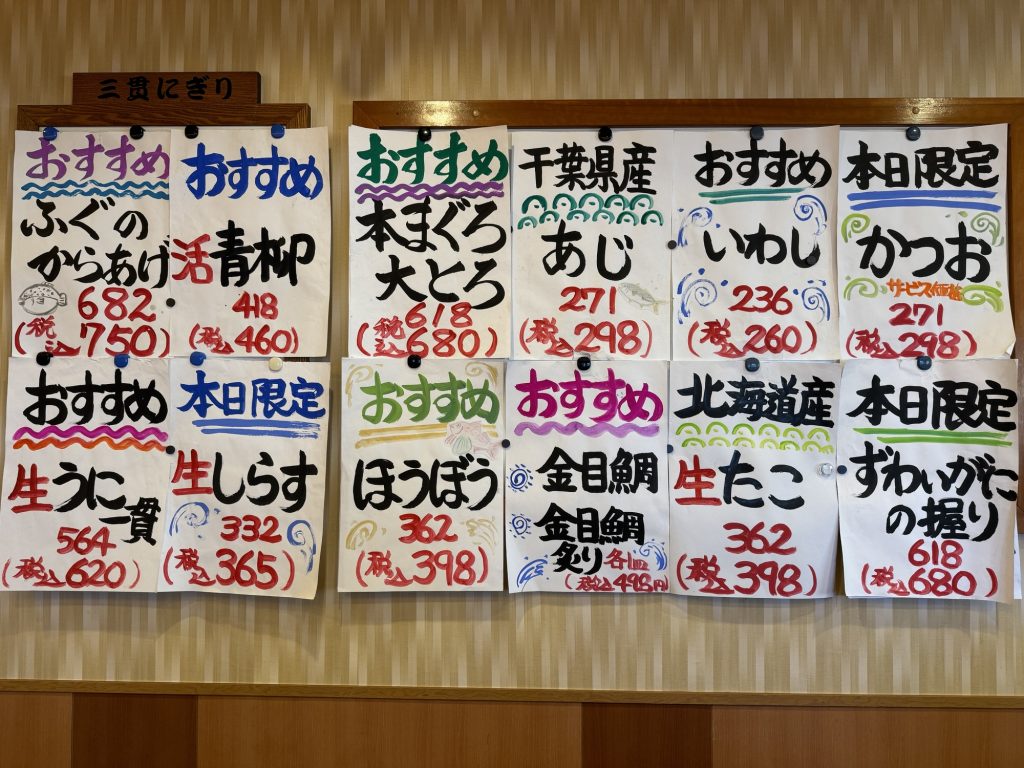 三貫にぎり
おすすめ
ふぐの
からあげ
682
(税込750)
おすすめ
活青柳
418
(税込460)
おすすめ
本まぐろ
大とろ
618
(税込680)
千葉県産
あじ
271
(税込298)
おすすめ
いわし
236
(税込260)
本日限定
かつお
サービス価格
271
(税込298)
おすすめ
生うに
一貫
564
(税込620)
本日限定
生しらす
332
(税込365)
おすすめ
ほうぼう
362
(税込398)
おすすめ
金目鯛
金目鯛
炙り 各1皿
(税込498円)
北海道産
生たこ
362
(税込398)
本日限定
ずわいがに
の握り
618
(税込680)